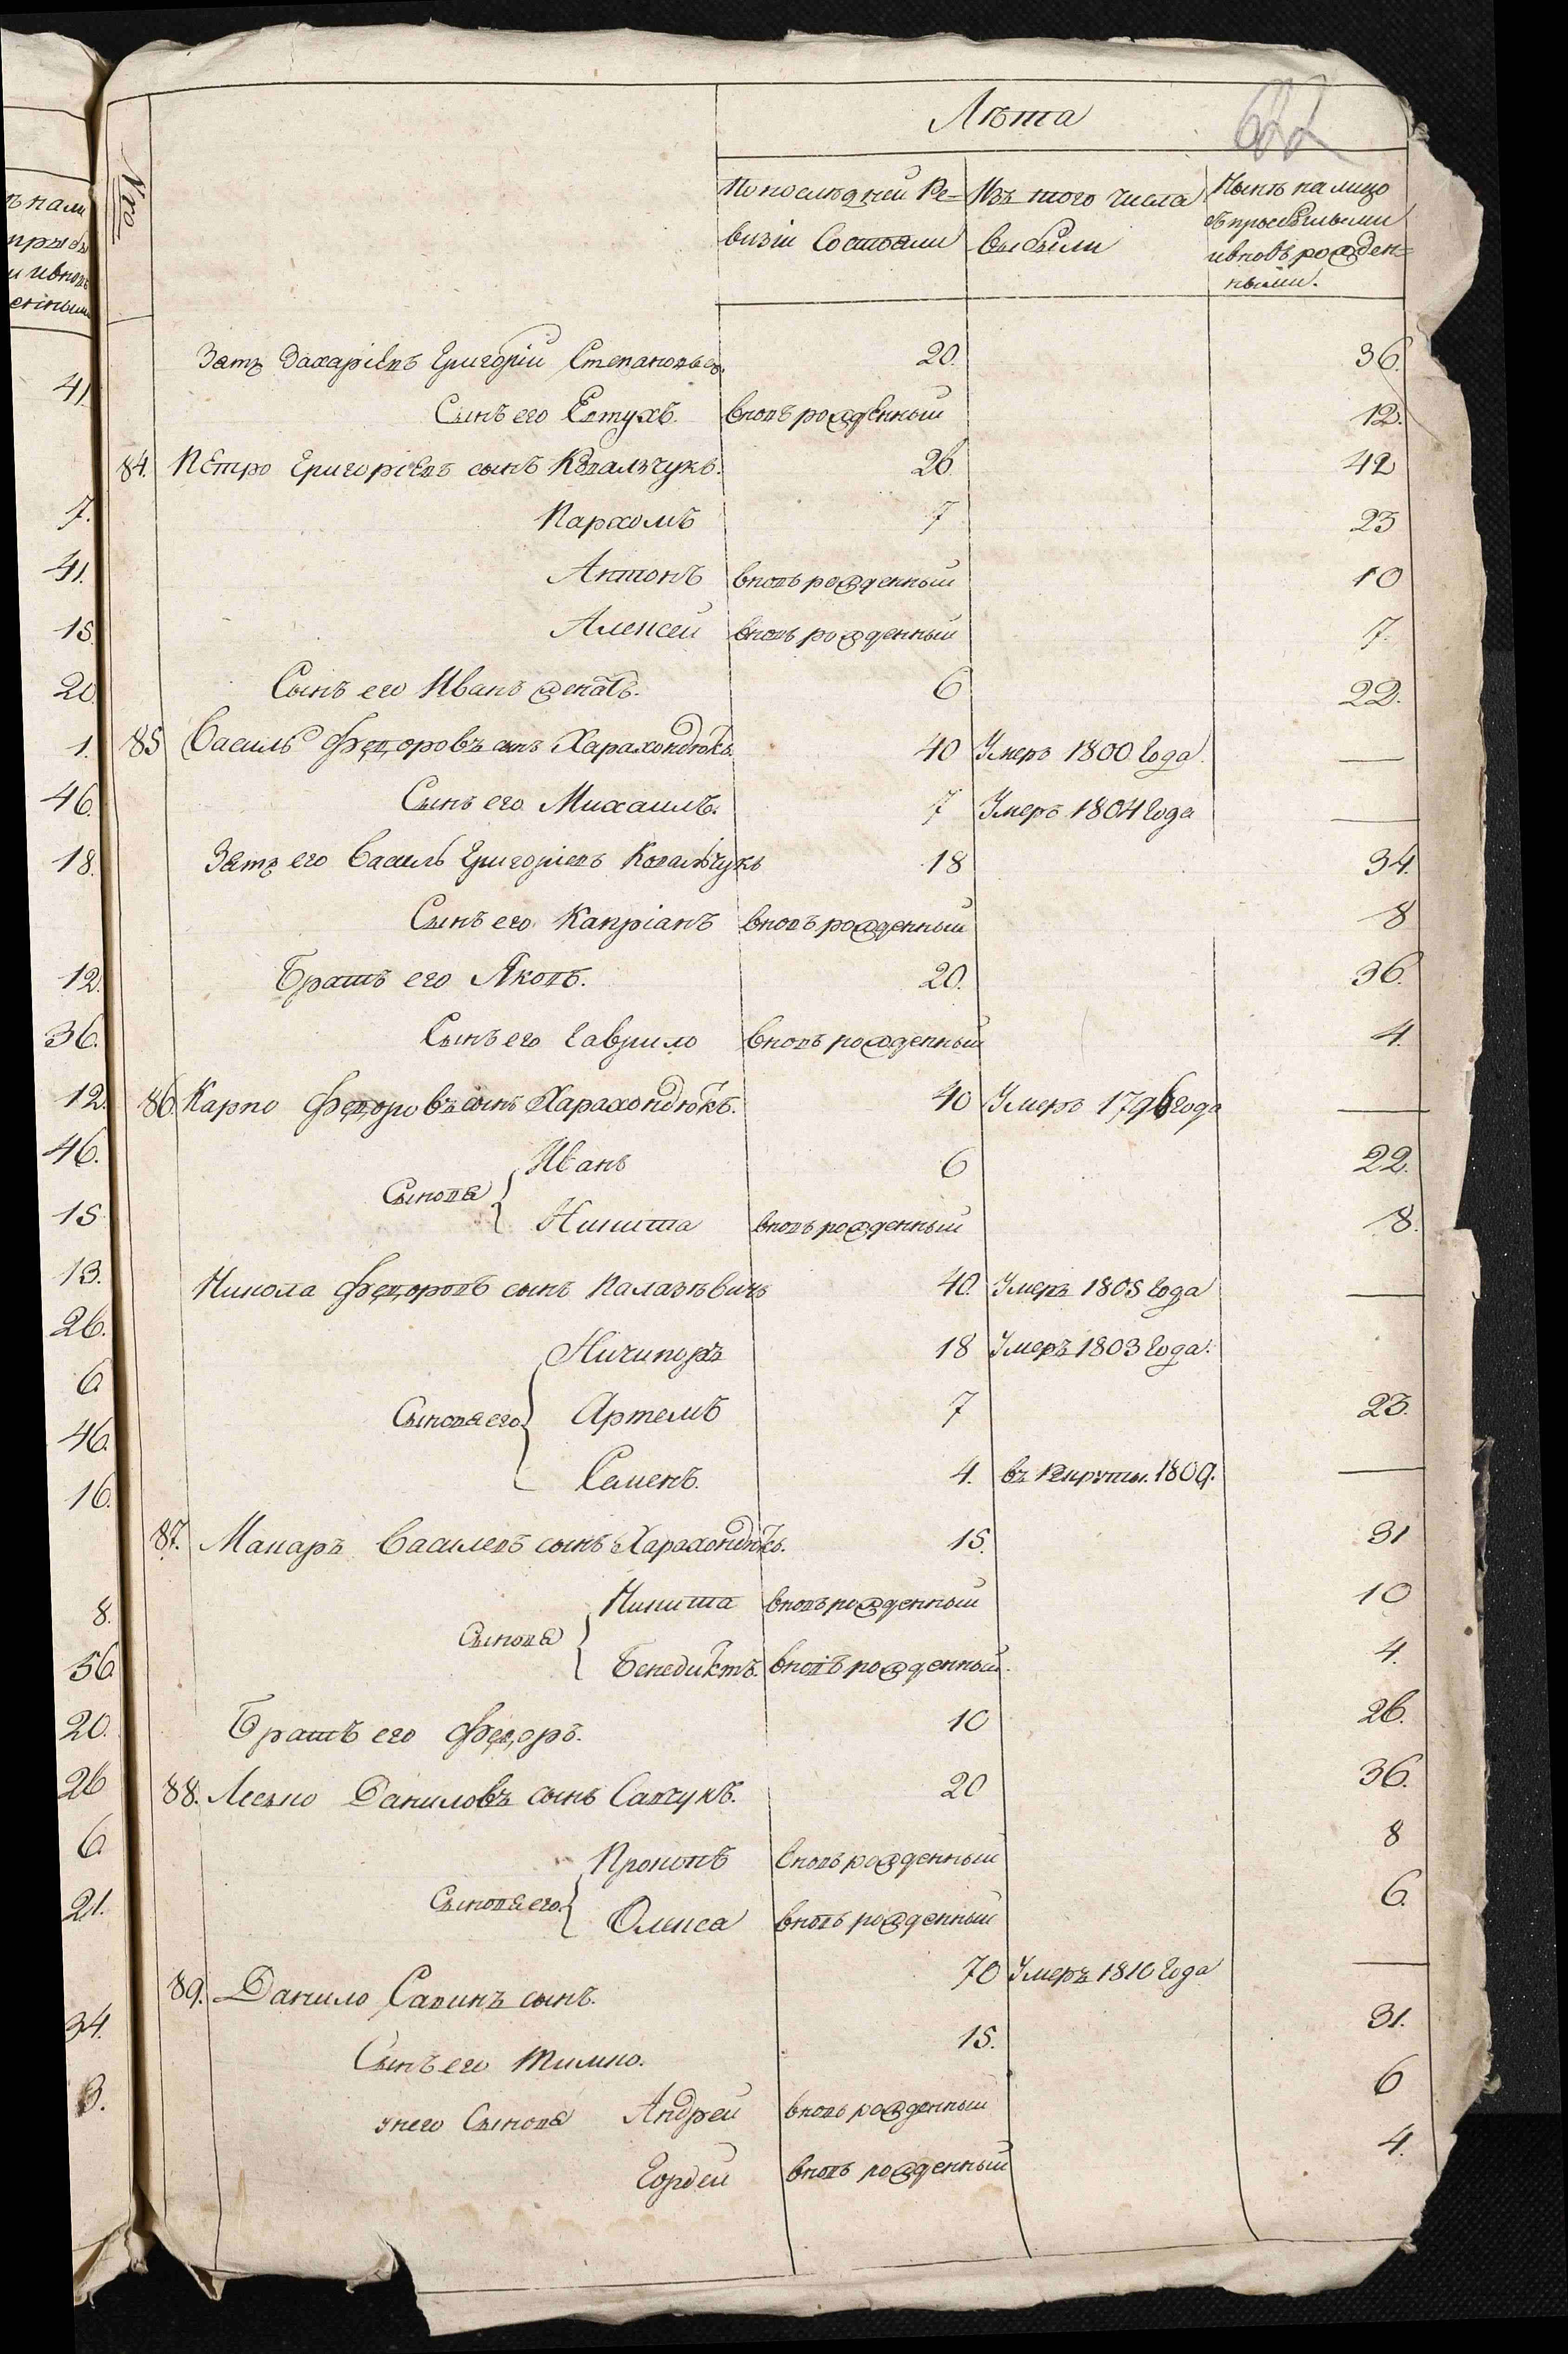 Лѣта
622
Nro
По послѣдней Ре=
визіи Состояли
Изъ того числа
выбыли
Нынѣ на лицо
съ прибылыми
и вновь рожден=
ными.
Зять Захаріевъ Григорій Степановъ 20. 36.
Сынъ его Евтухъ. вновь рожденный 12.
84. Петро Григоріевъ сынъ Ковальчукъ. 26 42
Пархомъ 7 23
Антонъ вновь рожденный 10
Алексей вновь рожденный 7.
Сынъ его Иванъ 6 22.
85 Василь Федоровъ сынъ Харахондюкъ. 40 Умеръ 1800 Года —
Сынъ его Михаилъ. 7 Умеръ 1804 Года —
Зять его Василь Григоріевъ Ковальчукъ 18 34.
Сынъ его Капріанъ вновь рожденный 8
Братъ его Яковъ. 20. 36.
Сынъ его Гаврило вновь рожденный 4.
86 Карпо Федоровъ сынъ Харахондюкъ. 40 Умеръ 1796 Года —
Сыновя { Иванъ 6 22.
Никита вновь рожденный 8.
Никола Федоровъ сынъ Палазѣвичъ 40. Умеръ 1805 Года —
Ничипоръ 18 Умеръ 1803 Года.
Сыновя его { Артемъ 7 23.
Семенъ. 4. въ Рекруты. 1809. —
87. Макаръ Василевъ сынъ Харахондюкъ. 15. 31
Сыновя { Никита вновь рожденный 10
Бенедиктъ. вновь рожденный. 4.
Братъ его Федоръ. 10 26.
88. Леско Даниловъ сынъ Савчукъ. 20 36.
Сыновя его { Прокопъ вновь рожденный 8
Олекса вновь рожденный 6.
89. Данило Савинъ сынъ. 70 Умеръ 1810 Года —
Сынъ его Тимко. 15. 31.
у него Сыновя Андрей вновь рожденный 6
Гордей вновь рожденный 4.
41.
7.
41.
15
20
1.
46.
18.
12.
36.
12.
46.
15
13.
26.
6
46.
16.
8.
56
20.
26
6
21.
34.
3.